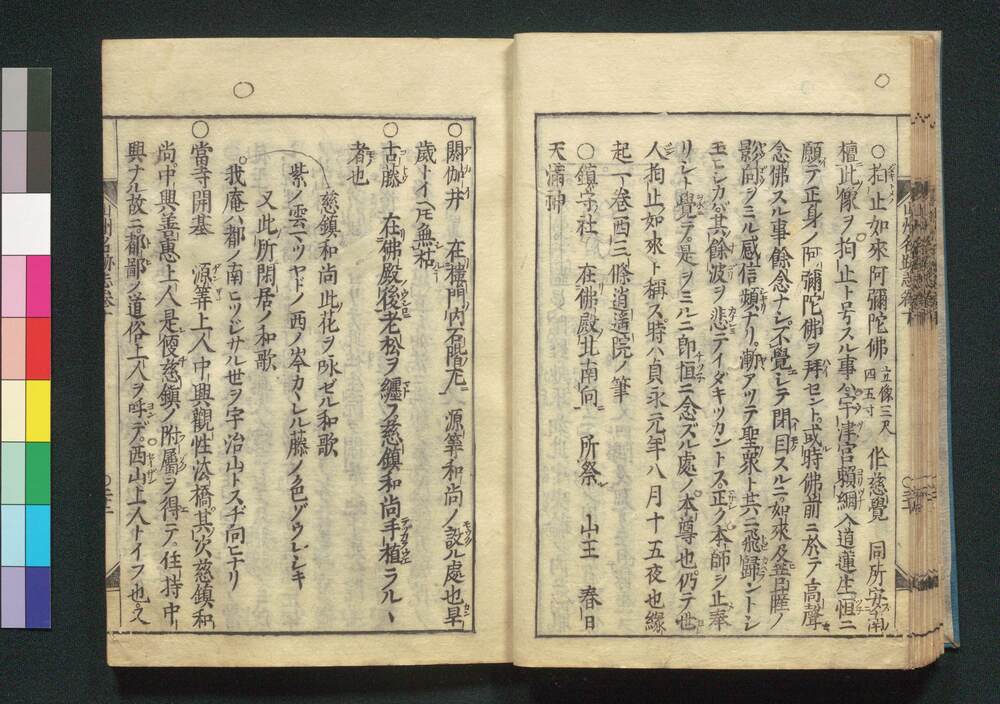 ○拘止如來阿彌陀佛 立像三尺四五寸 作慈覺 同所安南
檀此像ヲ拘止ト号スル事ハ宇津宮賴綱入道蓮生恒ニ
願テ正身ノ阿彌陀佛ヲ拜セント或時佛前ニ於テ高聲
念佛スル事餘念ナシ不覺シテ閉目スルニ如來及菩薩ノ
影向ヲミル感信頻ナリ漸アツテ聖衆ト共ニ飛歸ントシ
玉シカバ其餘波ヲ悲テイダキツカントス正ク本師ヲ止奉
リシト覺テ是ヲミルニ即恒ニ念ズル處ノ本尊也仍テ世
人拘止如來ト稱ス時ハ貞永元年八月十五夜也緣
起一卷西三條逍遥院ノ筆
○鎮守社 在佛殿北南向 所祭 山王 春日
天滿神
○閼伽井 在樓門內石階ノ左 源筭和尚ノ設ル處也旱
歲トイヘ𪜈無枯
○古藤 在佛殿後老松ヲ纏フ慈鎮和尚手植ラル丶
者也
慈鎮和尚此花ヲ詠ゼル和歌
紫ノ雲ニツヤドノ西ノ岑カヽレル藤ノ色ゾウレシキ
又此所閑居ノ和歌
我庵ハ都ノ南ヒツジサル世ヲ宇治山トスヂ向ヒナリ
○當寺開基 源筭上人中興觀性法橋其次慈鎮和
尚中興善惠上人是便慈鎮ノ附屬ヲ得テ住持中
興ナル故ニ都鄙ノ道俗上人ヲ呼デ西山上人トイフ也又